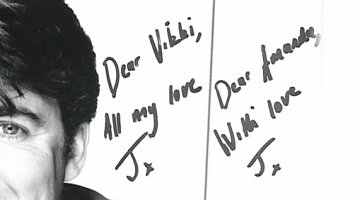 Dear Vikki,
All my love
J x
Dear Amanda,
With love
J x